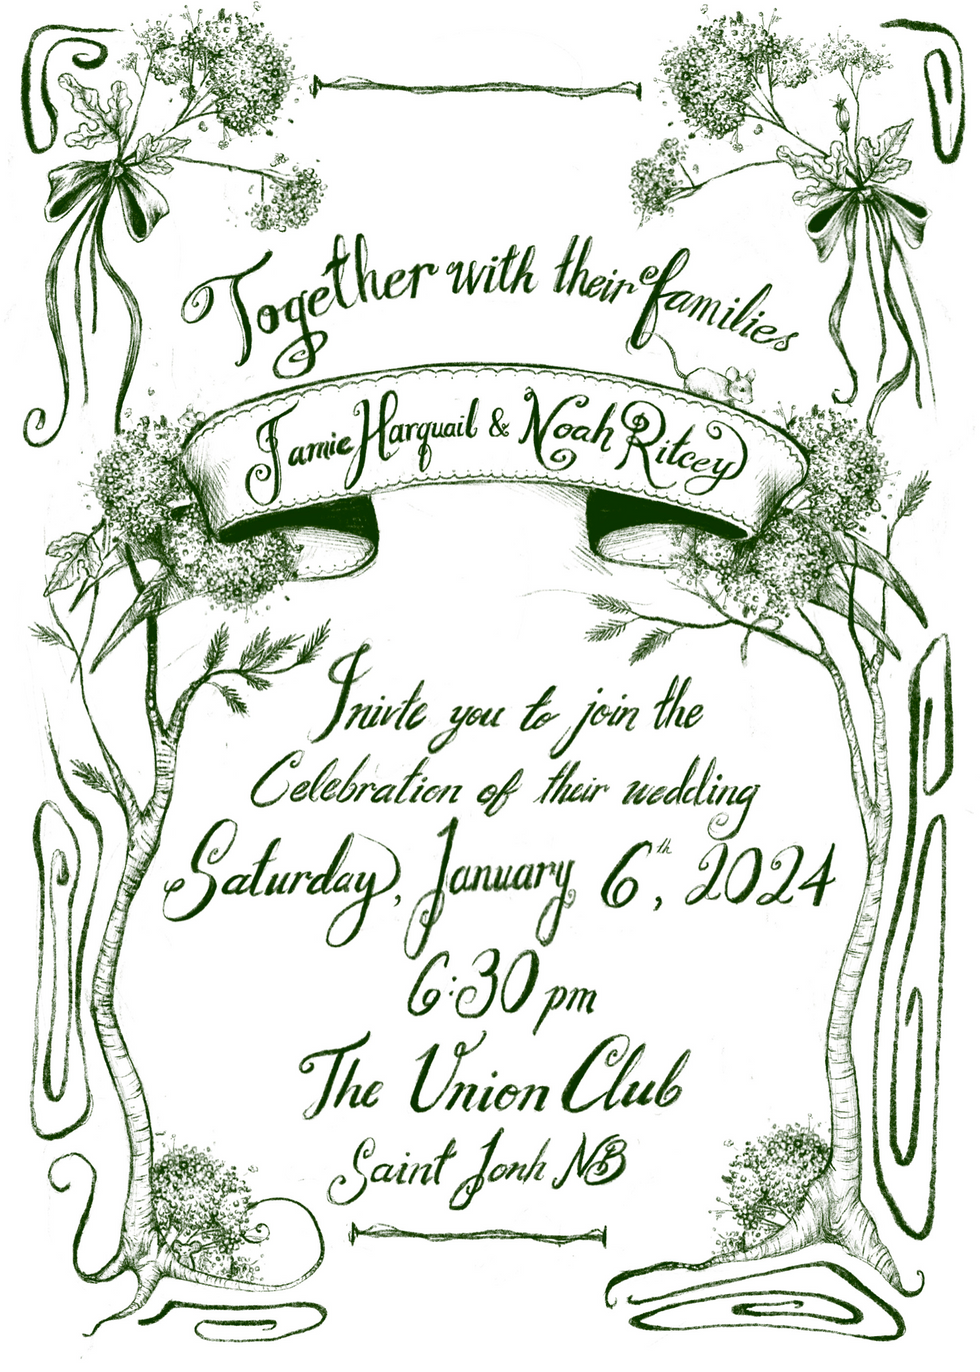 Together with their families
Jamie Harquail & Noah Ritcey
Inivte you to join the
Celebration of their wedding
Saturday, January 6th, 2024
6:30 pm
The Union Club
Saint Jonh NB